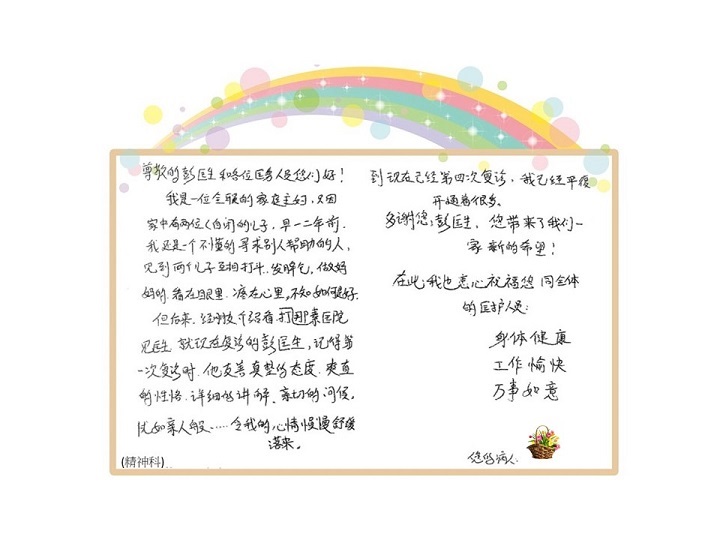 尊敬的彭医生和各位医务人员您们好！
我是一位全职的家庭主妇，又因
家中有两位(自闭)的儿子，早一二年前，
我还是一个不懂的寻求别人帮助的人，
见到两个儿子互相打斗、发脾气，做妈
妈的，看在眼里，疼在心里，不知如何是好。
但后来，经朋友介绍看，打那素医院
见医生，就现在复诊的彭医生，记得第
一次复诊时，他友善真挚的态度，爽直
的性格，详细的讲解、亲切的问候，
犹如亲人般……令我的心情慢慢舒缓
落来。
(精神科)
到现在已经第四次复诊，我已经平复
开通着很多。
多谢您：彭医生，您带来了我们一
家新的希望！
在此：我也衷心祝福您 同全体
的医护人员：
身体健康
工作愉快
万事如意
您的病人：